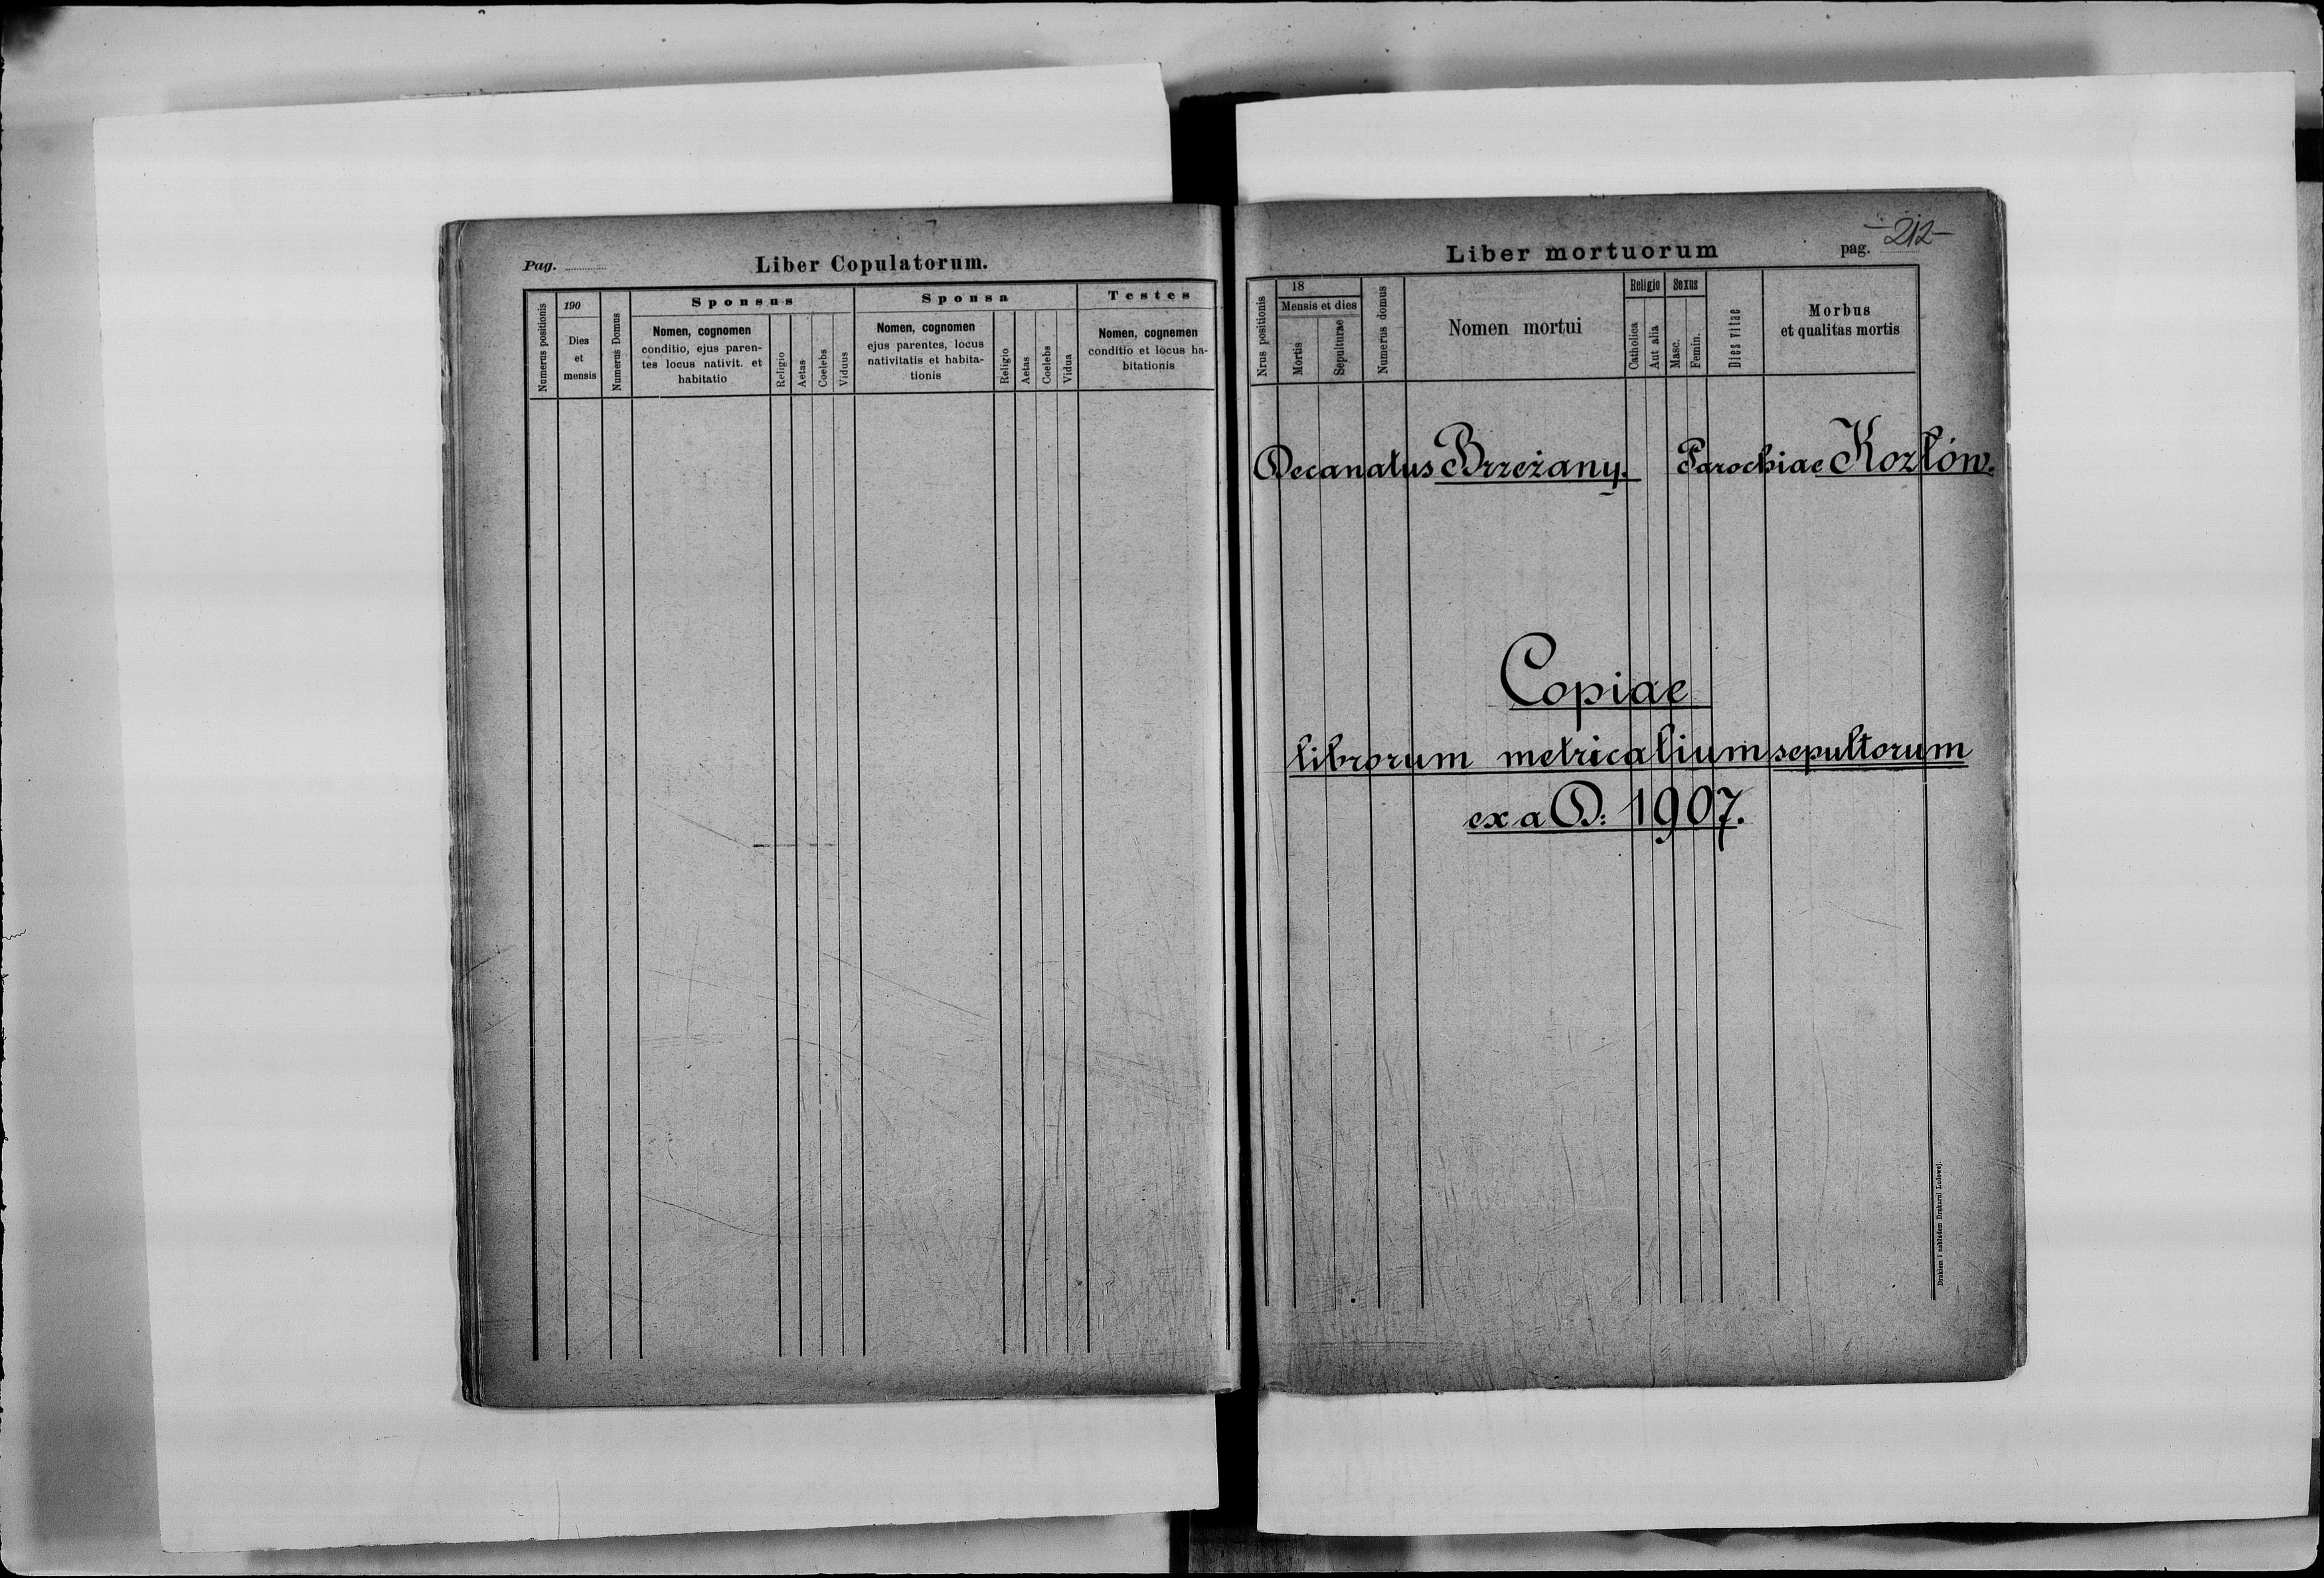 Pag. Liber Copulatorum.
Numerus positionis
190
Dies
et
mensis
Numerus Domus
Sponsus
Nomen, cognomen
conditio, ejus paren-
tes locus nativit. et
habitatio
Religio
Aetas
Coelebs
Viduus
Sponsa
Nomen, cognomen
ejus parentes, locus
nativitatis et habita-
tionis
Religio
Aetas
Coelebs
Vidua
Testes
Nomen, cognemen
conditio et locus ha-
bitationis
Liber mortuorum pag. -212-
Nrus positionis
18
Mensis et dies
Mortis
Sepulturae
Numerus domus
Nomen mortui
Religio
Catholica
Aut alia
Sexus
Masc.
Femin.
Dies vitae
Morbus
et qualitas mortis
Decanatus Brzeżany. Parochiae Kozłów.
Copiae
librorum metricalium sepultorum
ex a D: 1907.
Drukiem i nakładem Drukarni Ludowej.